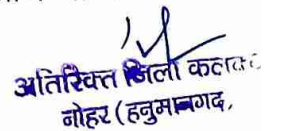 अतिरिक्त जिला कलक्ट
नोहर (हनुमानगढ़,